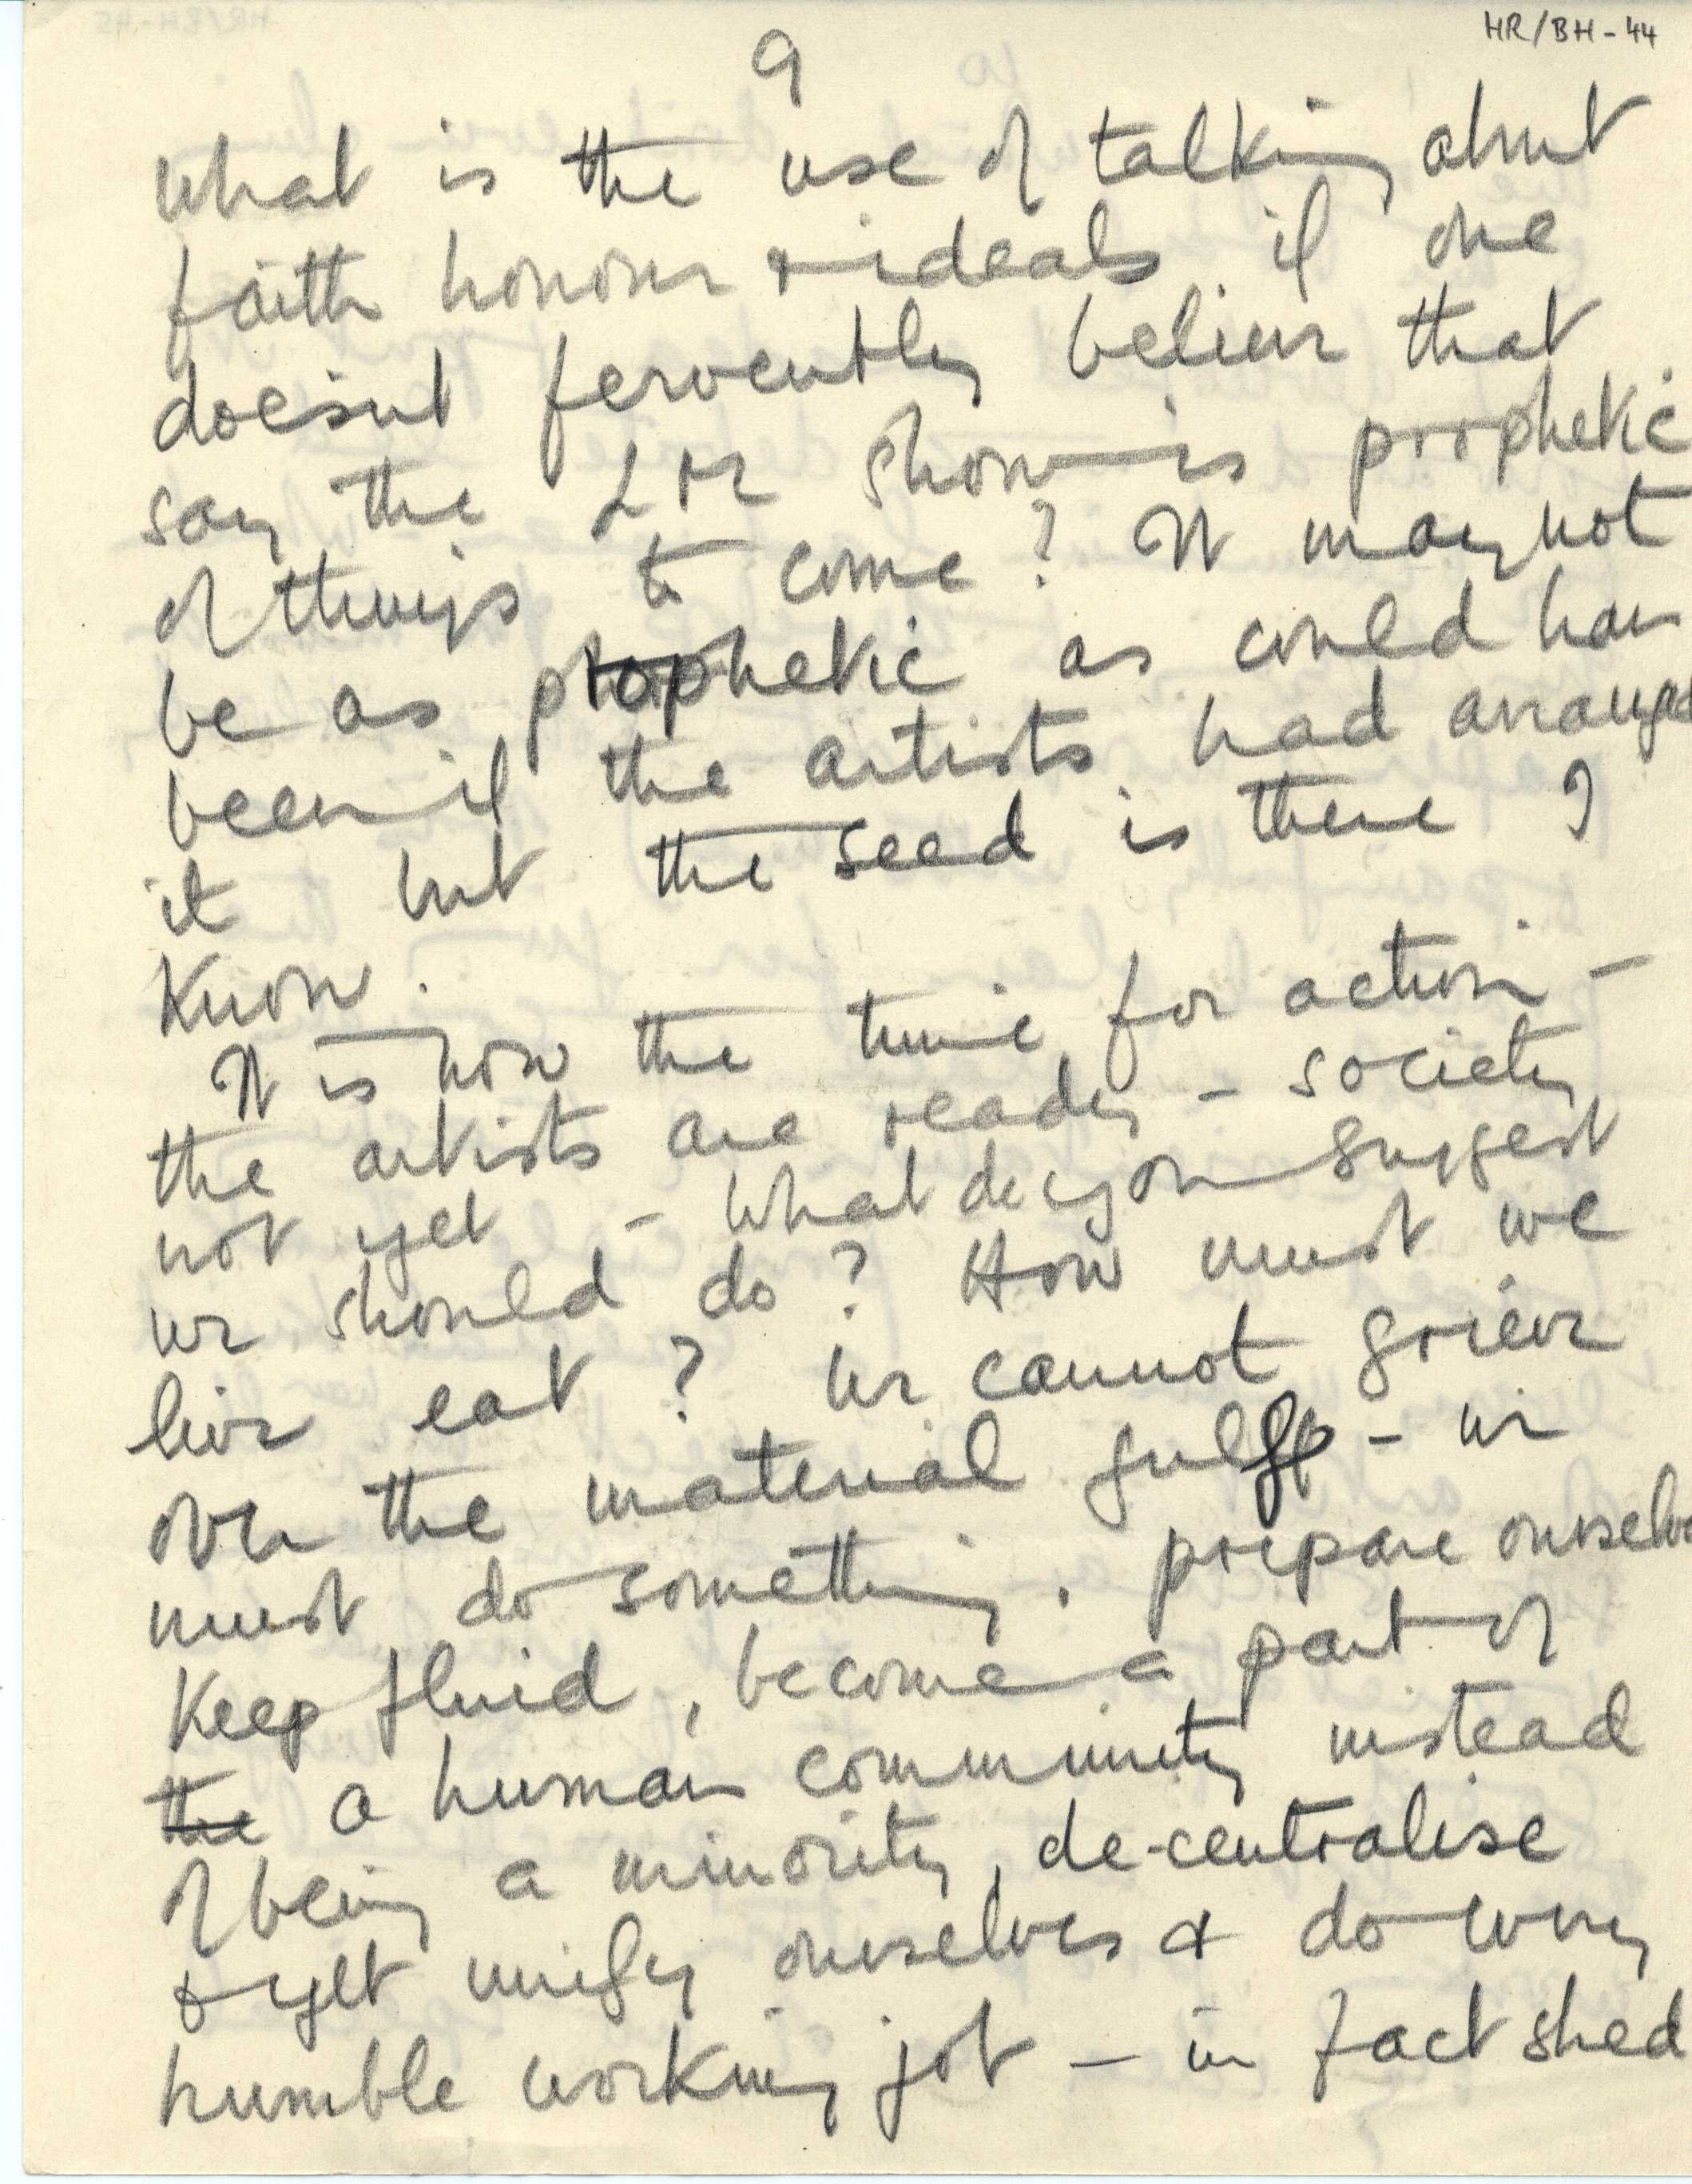 HR/BH-44
9
what is the use of talking about
faith honour & ideals if one
doesnt fervently believe that
say the L + R show is prophetic
of things to come? It may not
be as prophetic as could have
been if the artists had arranged
it but the seed is there I
know.
It is now the time for action –
the artists are ready – society
not yet – what do you suggest
we should do? How must we
live eat? We cannot grieve
over the material gulf – we
must do something. prepare ourselves
Keep fluid, become a part of
the a human community instead
of being a minority, de-centralise
& yet unify ourselves & do every
humble working job – in fact shed